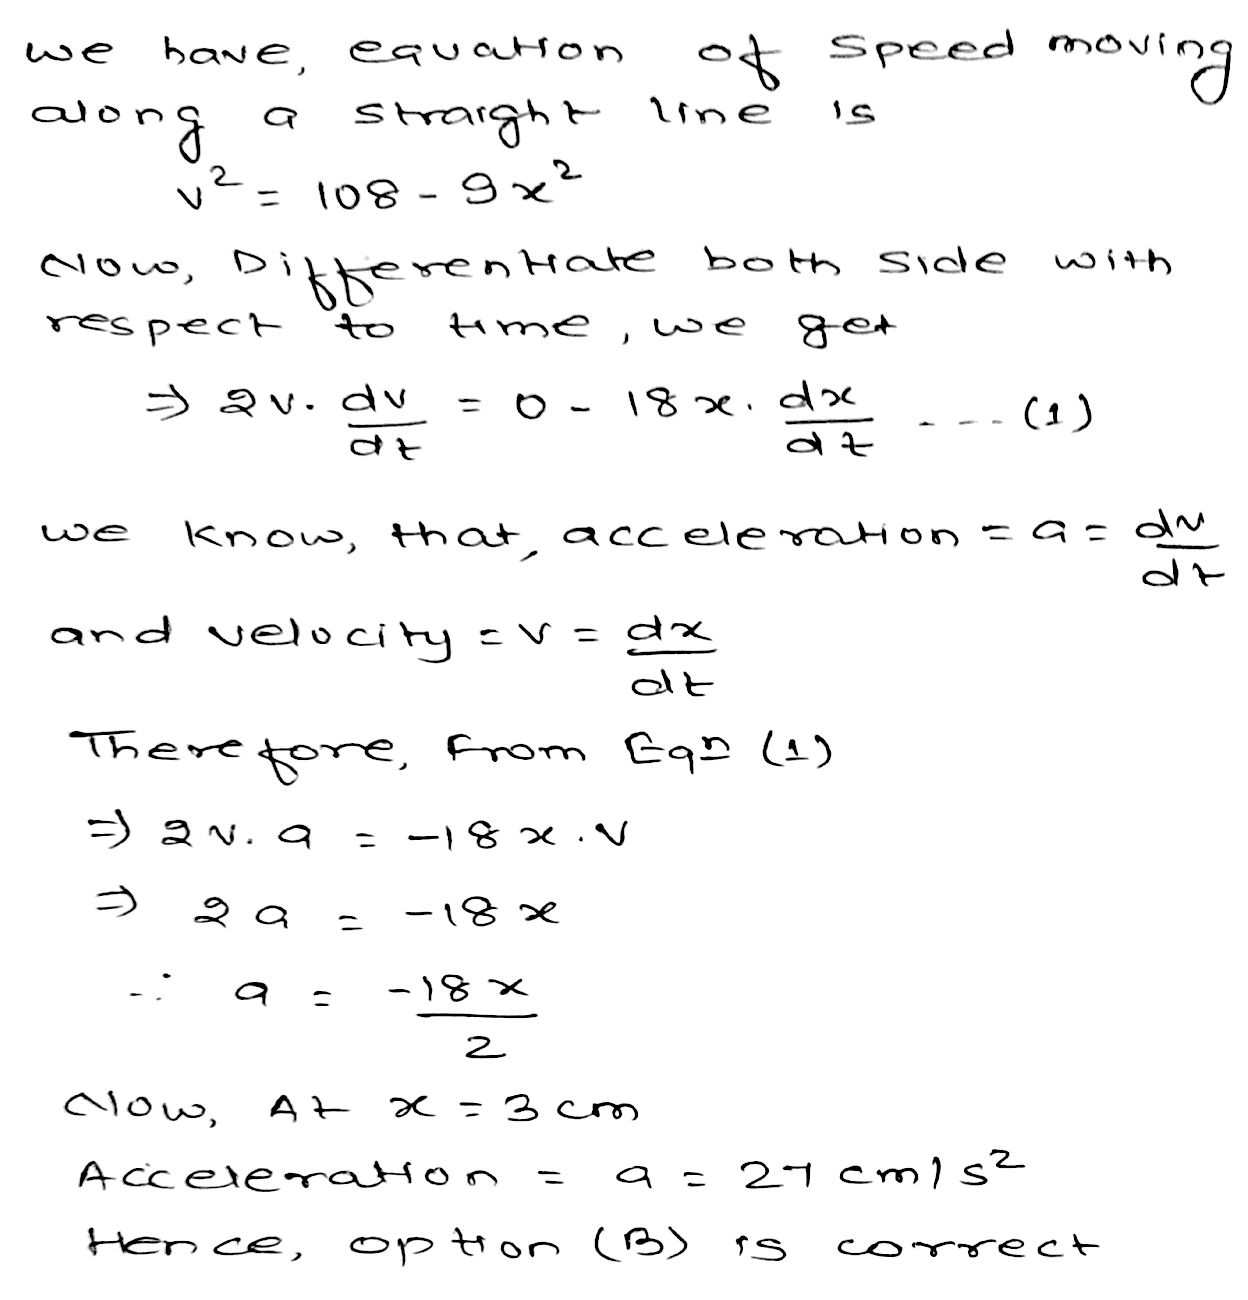 we have, equation of speed moving
along a straight line is
v² = 108 - 9x²
Now, Differentiate both side with
respect to time, we get
⇒ 2v. dv/dt = 0 - 18x. dx/dt ---- (1)
we know, that, acceleration = a = dv/dt
and velocity = v = dx/dt
Therefore, From Eqn (1)
⇒ 2v. a = -18x.v
⇒ 2a = -18x
∴ a = -18x/2
Now, At x = 3cm
Acceleration = a = 27 cm/s²
Hence, option (B) is correct